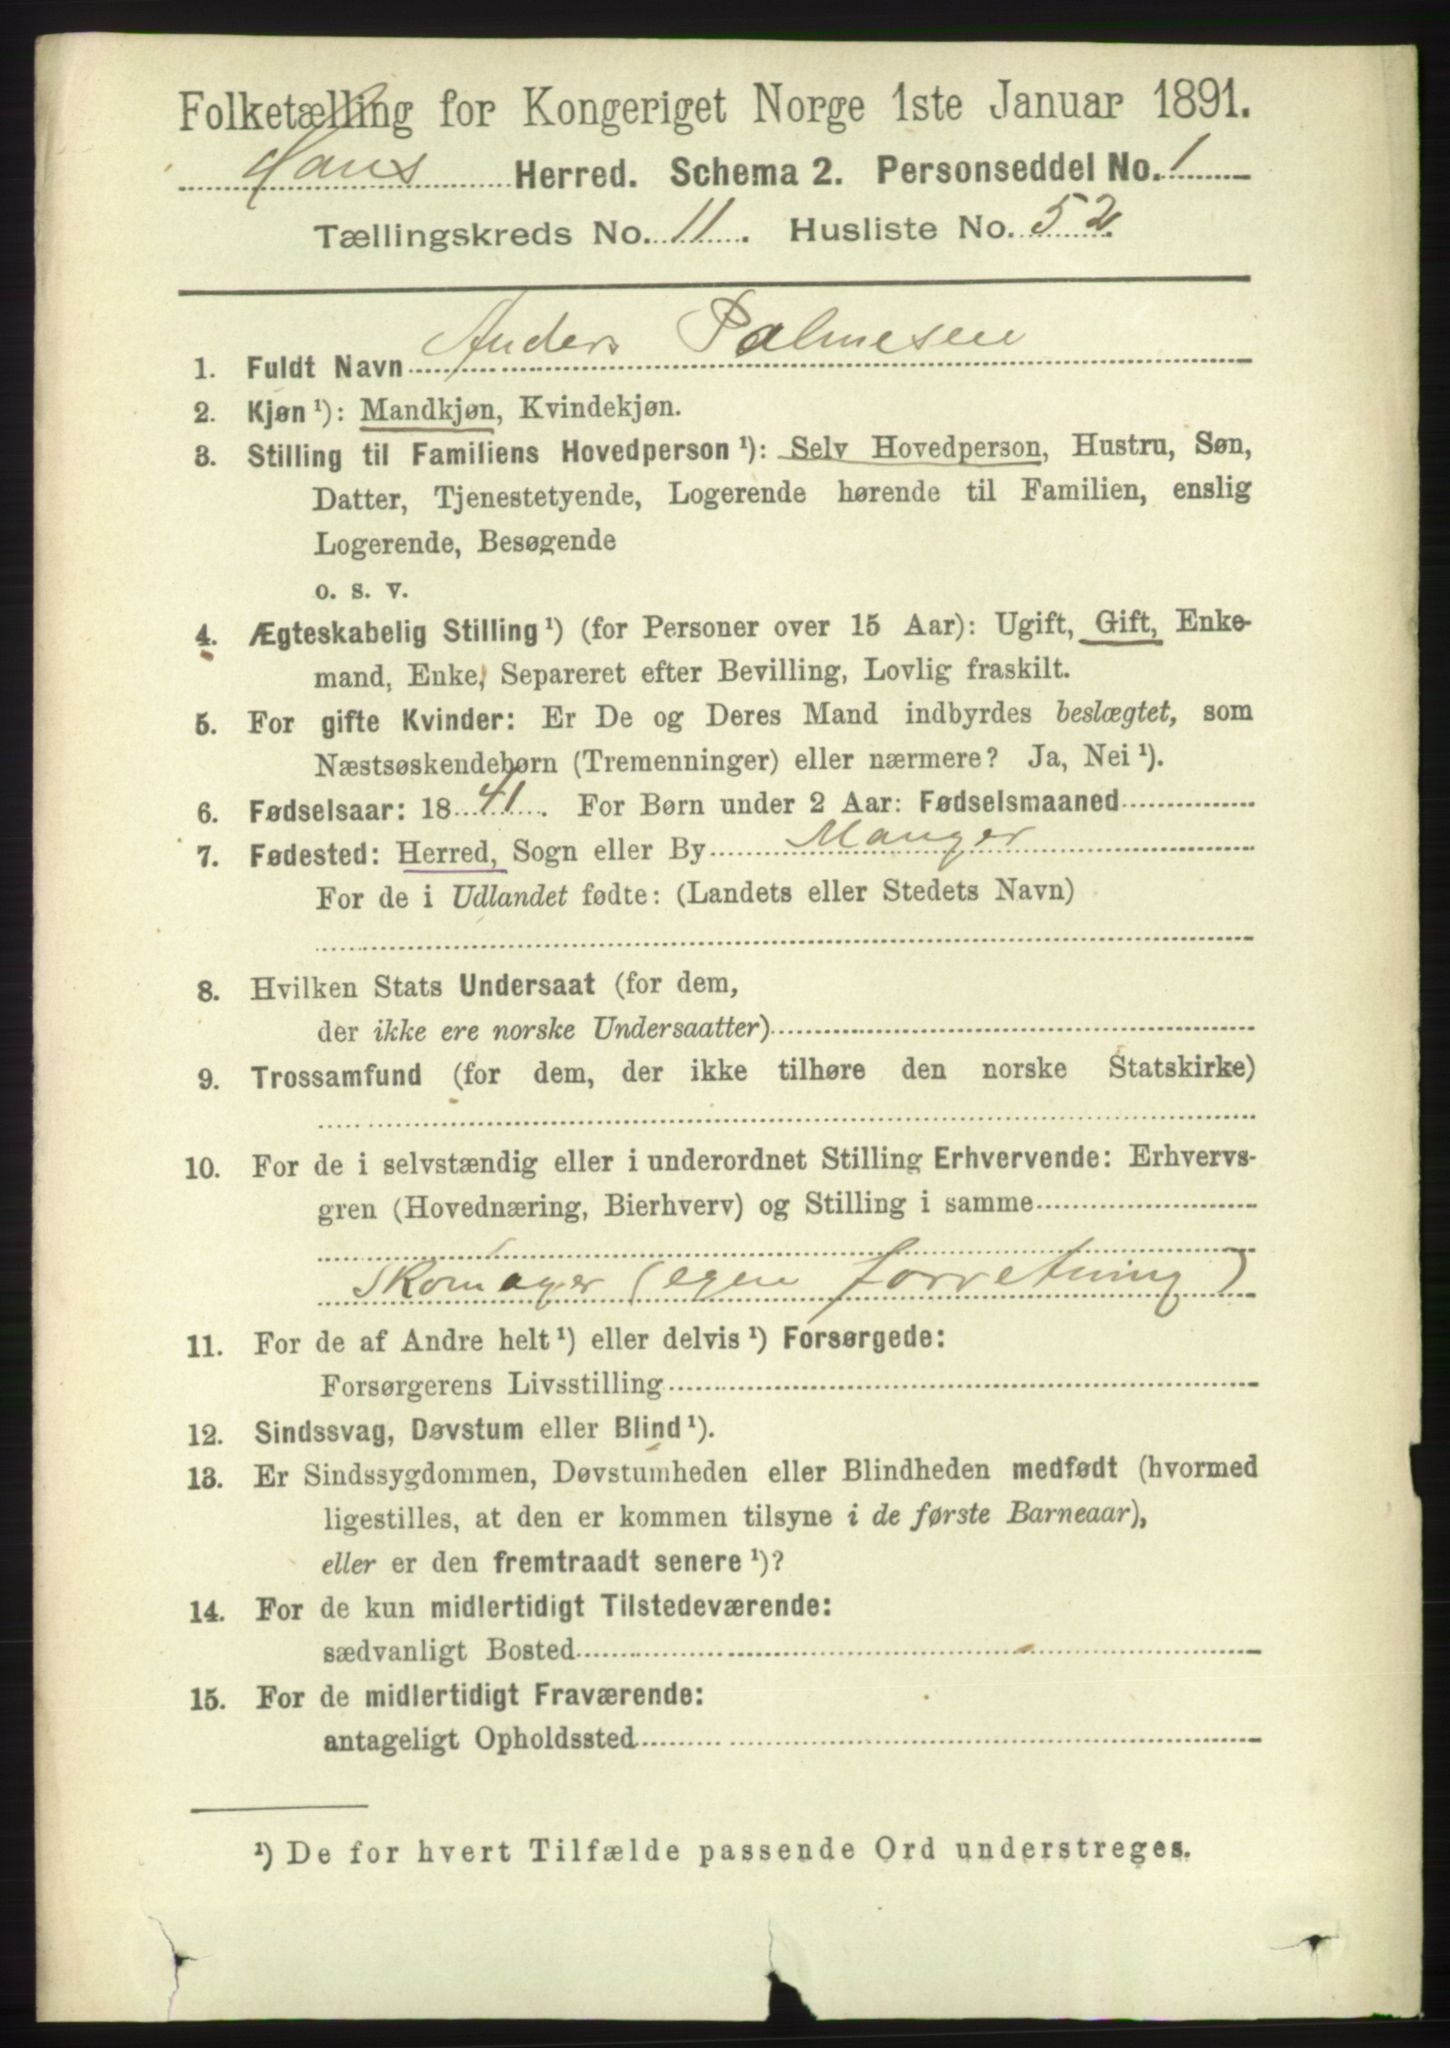 Folketælling for Kongeriget Norge 1ste Januar 1891.
Haus Herred. Schema 2. Personseddel No. 1
Tællingskreds No. 11. Husliste No. 52.
1. Fuldt Navn Anders Palmesen
2. Kjøn ¹): Mandkjøn, Kvindekjøn.
3. Stilling til Familiens Hovedperson ¹): Selv Hovedperson, Hustru, Søn,
Datter, Tjenestetyende, Logerende hørende til Familien, enslig
Logerende, Besøgende
o. s. v.
4. Ægteskabelig Stilling ¹) (for Personer over 15 Aar): Ugift, Gift, Enke-
mand, Enke, Separeret efter Bevilling, Lovlig fraskilt.
5. For gifte Kvinder: Er De og Deres Mand indbyrdes beslægtet, som
Næstsøskendebørn (Tremenninger) eller nærmere? Ja, Nei ¹).
6. Fødselsaar: 1841. For Børn under 2 Aar: Fødselsmaaned
7. Fødested: Herred, Sogn eller By Manger
For de i Udlandet fødte: (Landets eller Stedets Navn)
8. Hvilken Stats Undersaat (for dem,
der ikke ere norske Undersaatter)
9. Trossamfund (for dem, der ikke tilhøre den norske Statskirke)
10. For de i selvstændig eller i underordnet Stilling Erhvervende: Erhvervs-
gren (Hovednæring, Bierhverv) og Stilling i samme
Skomager (egen forretning)
11. For de af Andre helt ¹) eller delvis ¹) Forsørgede:
Forsørgerens Livsstilling
12. Sindssvag, Døvstum eller Blind ¹).
13. Er Sindssygdommen, Døvstumheden eller Blindheden medfødt (hvormed
ligestilles, at den er kommen tilsyne i de første Barneaar),
eller er den fremtraadt senere ¹)?
14. For de kun midlertidigt Tilstedeværende:
sædvanligt Bosted
15. For de midlertidigt Fraværende:
antageligt Opholdssted
¹) De for hvert Tilfælde passende Ord understreges.